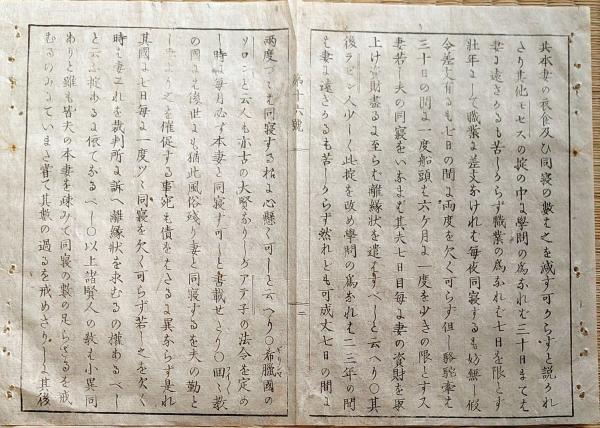 其本妻の衣食及ひ同寝の數も之を減す可からすと説かれ
たり其他モセスの掟の中よ學問の爲なれも三十日まても
妻よ遠さかるも苦しからす職業の爲なれも七日を限とす
壯年よして職業よ差支なけれも毎夜同寝するも妨無し假
令差支有るも七日の間よ兩度を欠く可らす但し駱駝牽も
三十日の間よ一度船頭も六ケ月よ一度を少きの限とす又
妻若し夫の同寝をいなまも其夫七日目毎よ妻の資財を取
上け資財盡るよ至らも離縁状を遣もすへしと云へり〇其
後ラビン人少しく此掟を改め學問の爲なれも二三年の間
も妻よ遠さかるも苦しからす然れとも可成丈七日の間よ
第十六號
二
兩度つゝも同寝する樣よ心懸く可しと云へり〇希臘國の
ソロンと云人も亦古の大賢なりしがアテ子の法令を定め
し時よ毎月必す本妻と同寝す可しと書載せたり〇回々教
の國よも後世よも猶此風俗殘り妻と同寝するを夫の勤と
し妻より之を催促する事宛も債をもたるよ異ならす是れ
其國よ七日毎よ一度ツヽ同寝を欠く可らす若し之を欠く
時も妻これを裁判所よ訴へ離縁状を求むるの權あるへし
と云ふ掟あるよ依てなるへし〇以上諸賢人の教も小異同
ありと雖も皆夫の本妻を疎みて同寝の數の足らさるを戒
むるのみよていまた嘗て其數の過るを戒めたりしよ其後